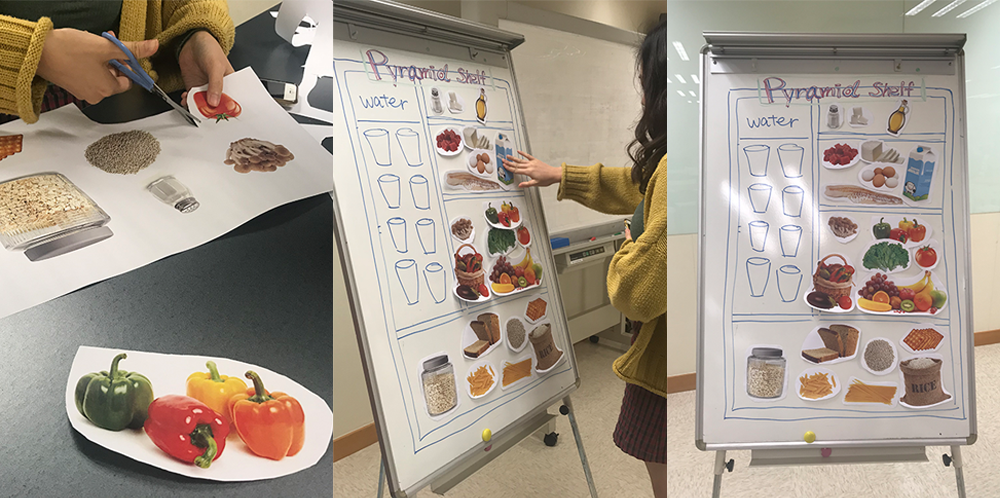 Pyramid Shelf
water
Pyramid Shelf
water
RICE